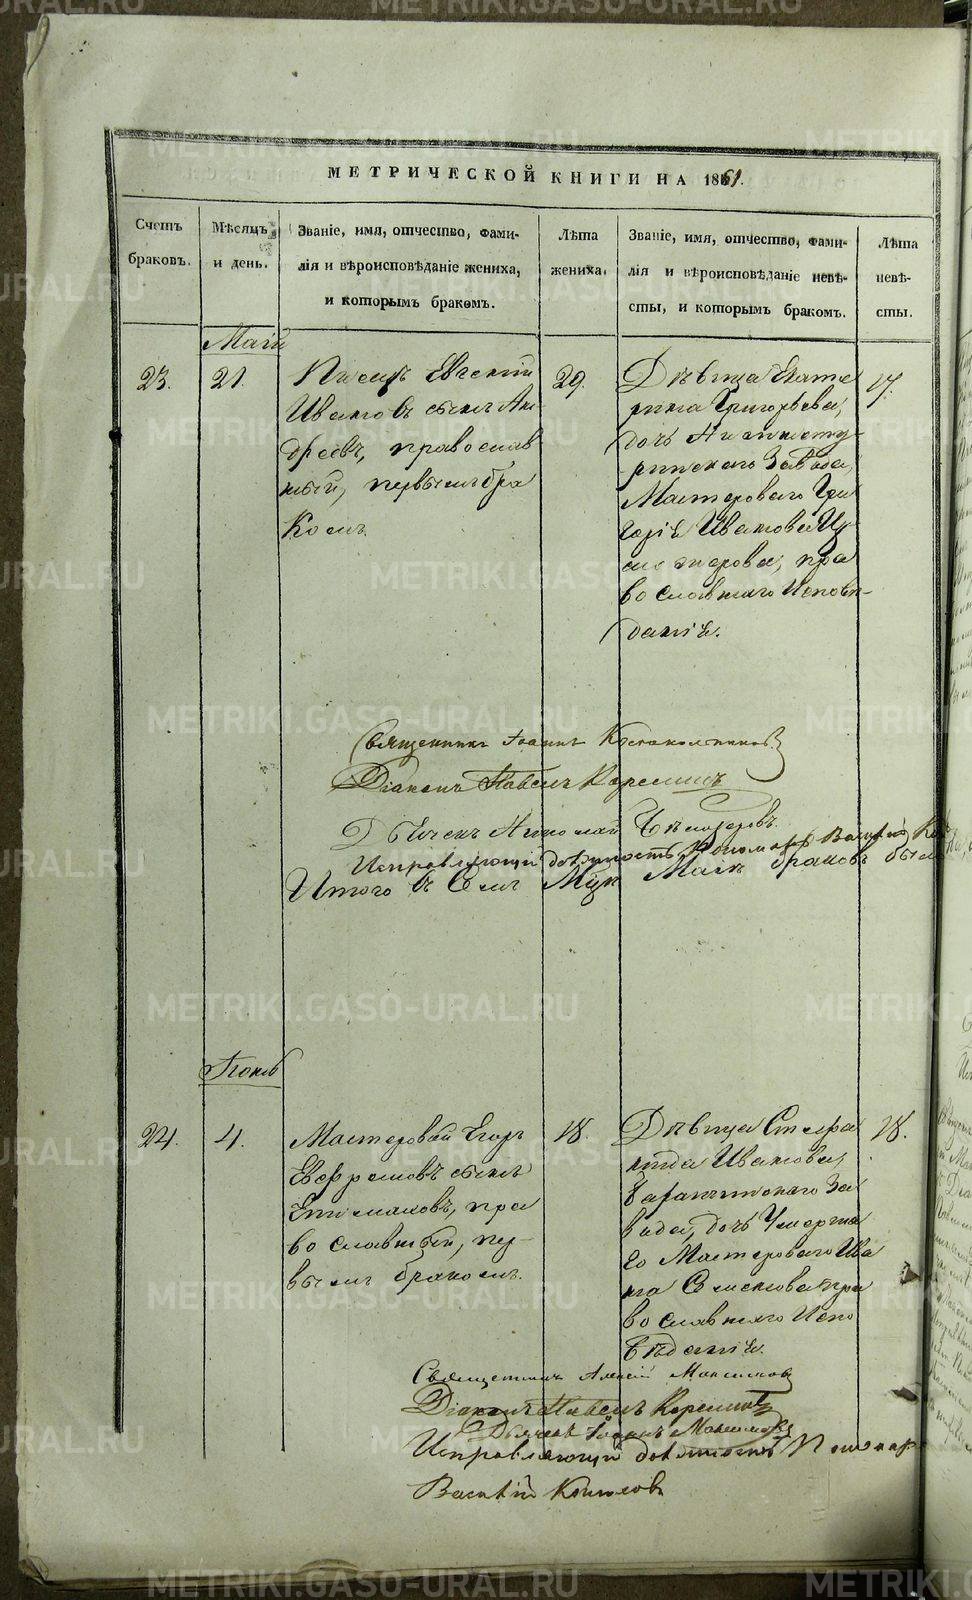 МЕТРИЧЕСКОЙ КНИГИ НА 1861.
Счетъ браковъ.
Мѣсяцъ и день.
Званіе, имя, отчество, фами-
лія и вѣроисповѣданіе жениха,
и которымъ бракомъ.
Лѣта жениха.
Званіе, имя, отчество, фами-
лія и вѣроисповѣданіе невѣ-
сты, и которымъ бракомъ.
Лѣта
невѣ-
сты.
Маій
23.
21.
Писецъ Евгеній
Ивановъ сынъ Ан
дреевъ, православ
ный, первымъ бра
комъ.
29.
Дѣвица Екате
рина Григорьева,
дочь Нижнету-
ринскаго Завода
Мастероваго Гри
горія Иванова
православнаго Исповѣ-
данія.
17.
Священникъ Іоаннъ
Діаконъ Павелъ Корелинъ
Дьячекъ Николай
Исправляющій должность Пономаря Василій
Итого въ Семъ Мцѣ Маіѣ браковъ было
Іюнь
24.
4.
Мастеровой Егоръ
Евфремовъ сынъ
Епимаховъ, пра
вославный, пер-
вымъ бракомъ.
18.
Дѣвица Стефа
нида Иванова,
Баранчинскаго За
вода, дочь Умерша
го Мастероваго Ива
на Семенова пра
вославнаго Испо
вѣданія.
18.
Священникъ Алексій Максимовъ
Діаконъ Павелъ Корелинъ
Дьячекъ Іоаннъ Максимовъ
Исправляющій должность Пономаря
Василій Конюховъ
METRIKI.GASO-URAL.RU